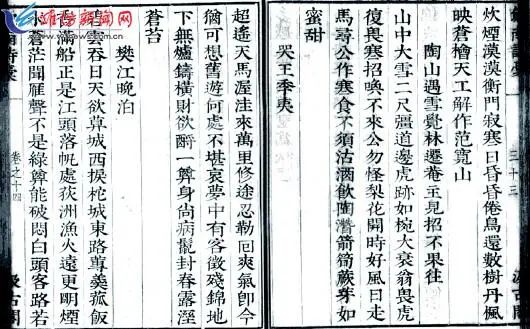 炊煙漠漠衡門寂寒日昏昏倦鳥還數樹丹楓
映蒼檜天工解作范寬山
陶山遇雪覺林遷菴主見招不果往
山中大雪二尺彊道邊虎跡如椀大衰翁畏虎
復畏寒招喚不來公勿怪梨花開時好風日走
馬尋公作寒食不須沽酒飲陶潛箭筍蕨芽如
蜜甜
哭王季夷
超遙天馬渥洼來萬里修途忍勒回爽氣卽今
猶可想舊遊何處不堪哀夢中有客徵殘錦地
下無爐鑄橫財欲酹一尊身尚病鬣封春露溼
蒼苔
樊江晚泊
雲吞日天欲莫城西捩柁城東路蓴羹菰飯
香滿船正是江頭落帆處荻洲漁火遠更明煙
水蒼茫聞雁聲不是綠尊能破悶白頭客路若
卷之十四
汲古閣
三十三